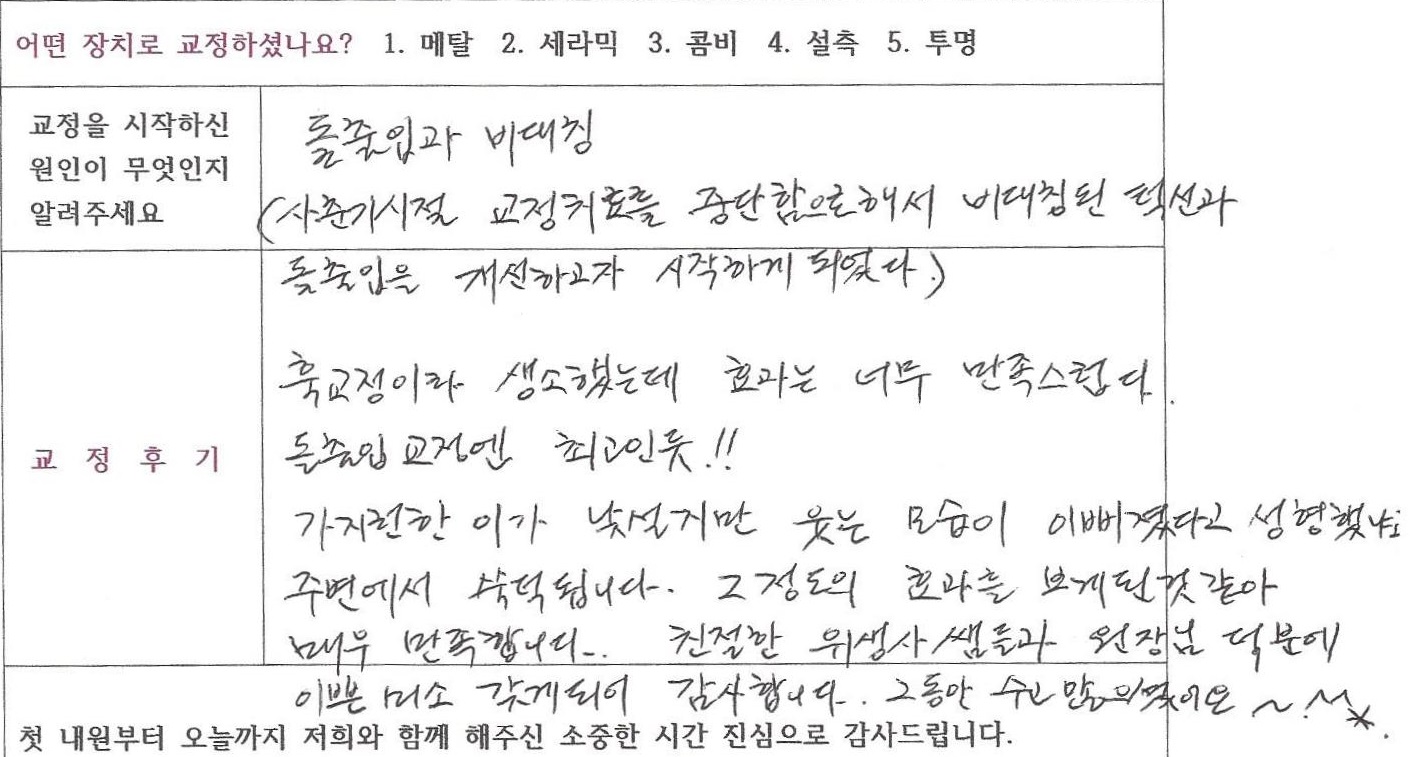 어떤 장치로 교정하셨나요? 1. 메탈 2. 세라믹 3. 콤비 4. 설측 5. 투명
교정을 시작하신
원인이 무엇인지
알려주세요
돌출입과 비대칭
(사춘기시절 교정치료를 중단함으로해서 비대칭된 턱선과
돌출입을 개선하고자 시작하게 되었다.)
교 정 후 기
훅교정이라 생소했는데 효과는 너무 만족스럽다.
돌출입 교정엔 최고인듯.!!
가지런한 이가 낯설지만 웃는 모습이 이뻐졌다고 성형했냐고
주변에서 쑥덕됩니다. 그정도의 효과를 보게된것 같아
매우 만족합니다.. 친절한 위생사쌤들과 원장님 덕분에
이쁜 미소 갖게되어 감사합니다.. 그동안 수고 많으셨어요 ~.^^*.
첫 내원부터 오늘까지 저희와 함께 해주신 소중한 시간 진심으로 감사드립니다.